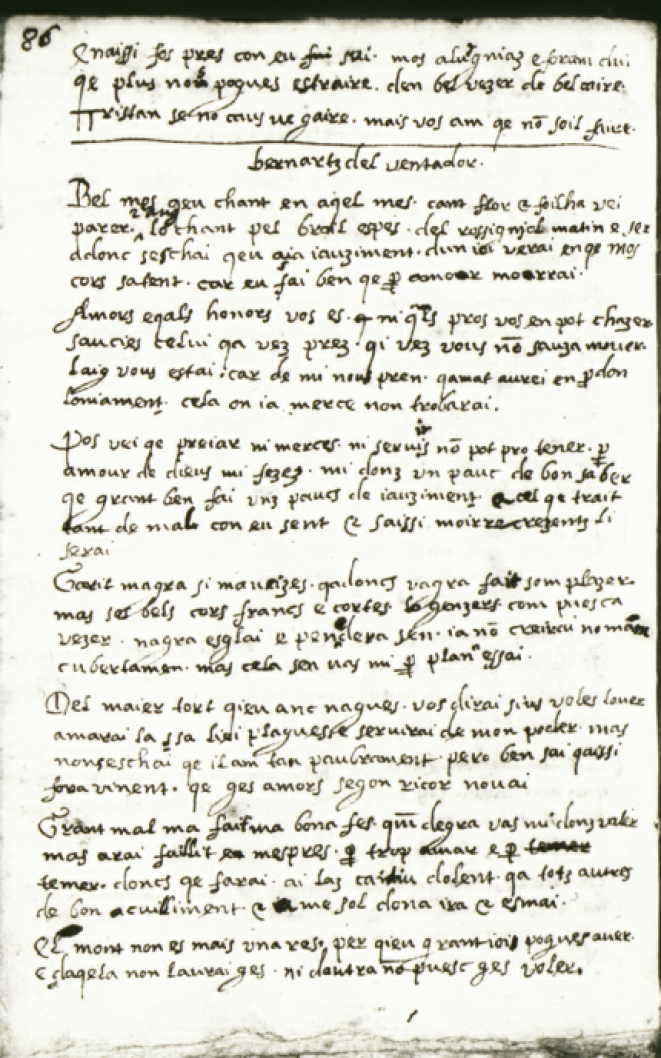 86
Enaissi fos pres con eu sui. mos alugniaz e foran dui
qe plus nom pogues estraire. den bel vezer de bel caire.
Tristan se no caus ue gaire. mais vos am qe nō soil faire.
bernartz del ventador.
Bel mes qeu chant en aqel mes. cant flor & foilha vei
parer. lo chant pel broill espes. del rossignol matin e ser
adonc seschai qeu aia iauziment. dun ioi verai enqe mos
cors satent. car eu sai ben qe ꝑ amor morrai.
Amors eqals honors vos es. pros vos en pot chazer
saucies celui qa vez prez. qi vez vous nō sauza mouer.
laig vous estai. car de mi nous pren. qamat aurei en ꝑdon
loniament. cela on ia merce non trobarai.
Pos vei qe preiar ni merces. ni seruirs nō pot pro tener. ꝑ
amour de dieus mi fezes. mi donz vn pauc de bon saber
qe grant ben fai vnz paucs de iauziment. a cel qe trait
tant de mal con eu sent & saissi moirre crezentz li
serai
Garit magra si maucizes. qadoncs vagra fait som plazer.
mas sos bels cors francs e cortes. lo genzers com puesca
vezer. nagra esglai e pendera sen. ia nō creirai no mam
cubertamen. mas cela sen vas mi ꝑ plan essai.
Del maier tort qieu anc nagues. vos dirai sius voles lo uer
amarai la ssa lidi plagues e seruirai de mon poder. mas
nonseschai qe il am tan paubrament. pero ben sai qaissi
fora vinent. qe ges amors segon ricor no uai
Grant mal ma fait ma bona fes. qm degra vas mi donz valer
mas arai faillit e mespres. ꝑ trop amar e ꝑ temer
temer. doncs qe farai. ai laz caitiu dolent. qa totz autres
de bon acuilliment & a me sol dona ira & esmai.
El mont non es mais vna res. per qieu grant ioi pogues auer.
e daqela non laurai ges. ni dautra nō puesc ges voler.